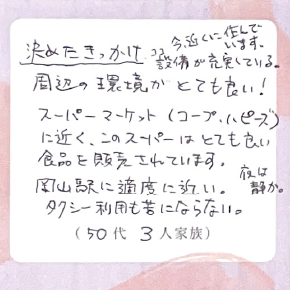 決めたきっかけ
今近くに住んで
います。
設備が充実している。
周辺の環境がとても良い!
スーパーマーケット(コープ、ハピーズ)
に近く、このスーパーはとても良い
食品を販売されています。
岡山駅に適度に近い。
夜は
静か。
タクシー利用も苦にならない。
(50代 3人家族)